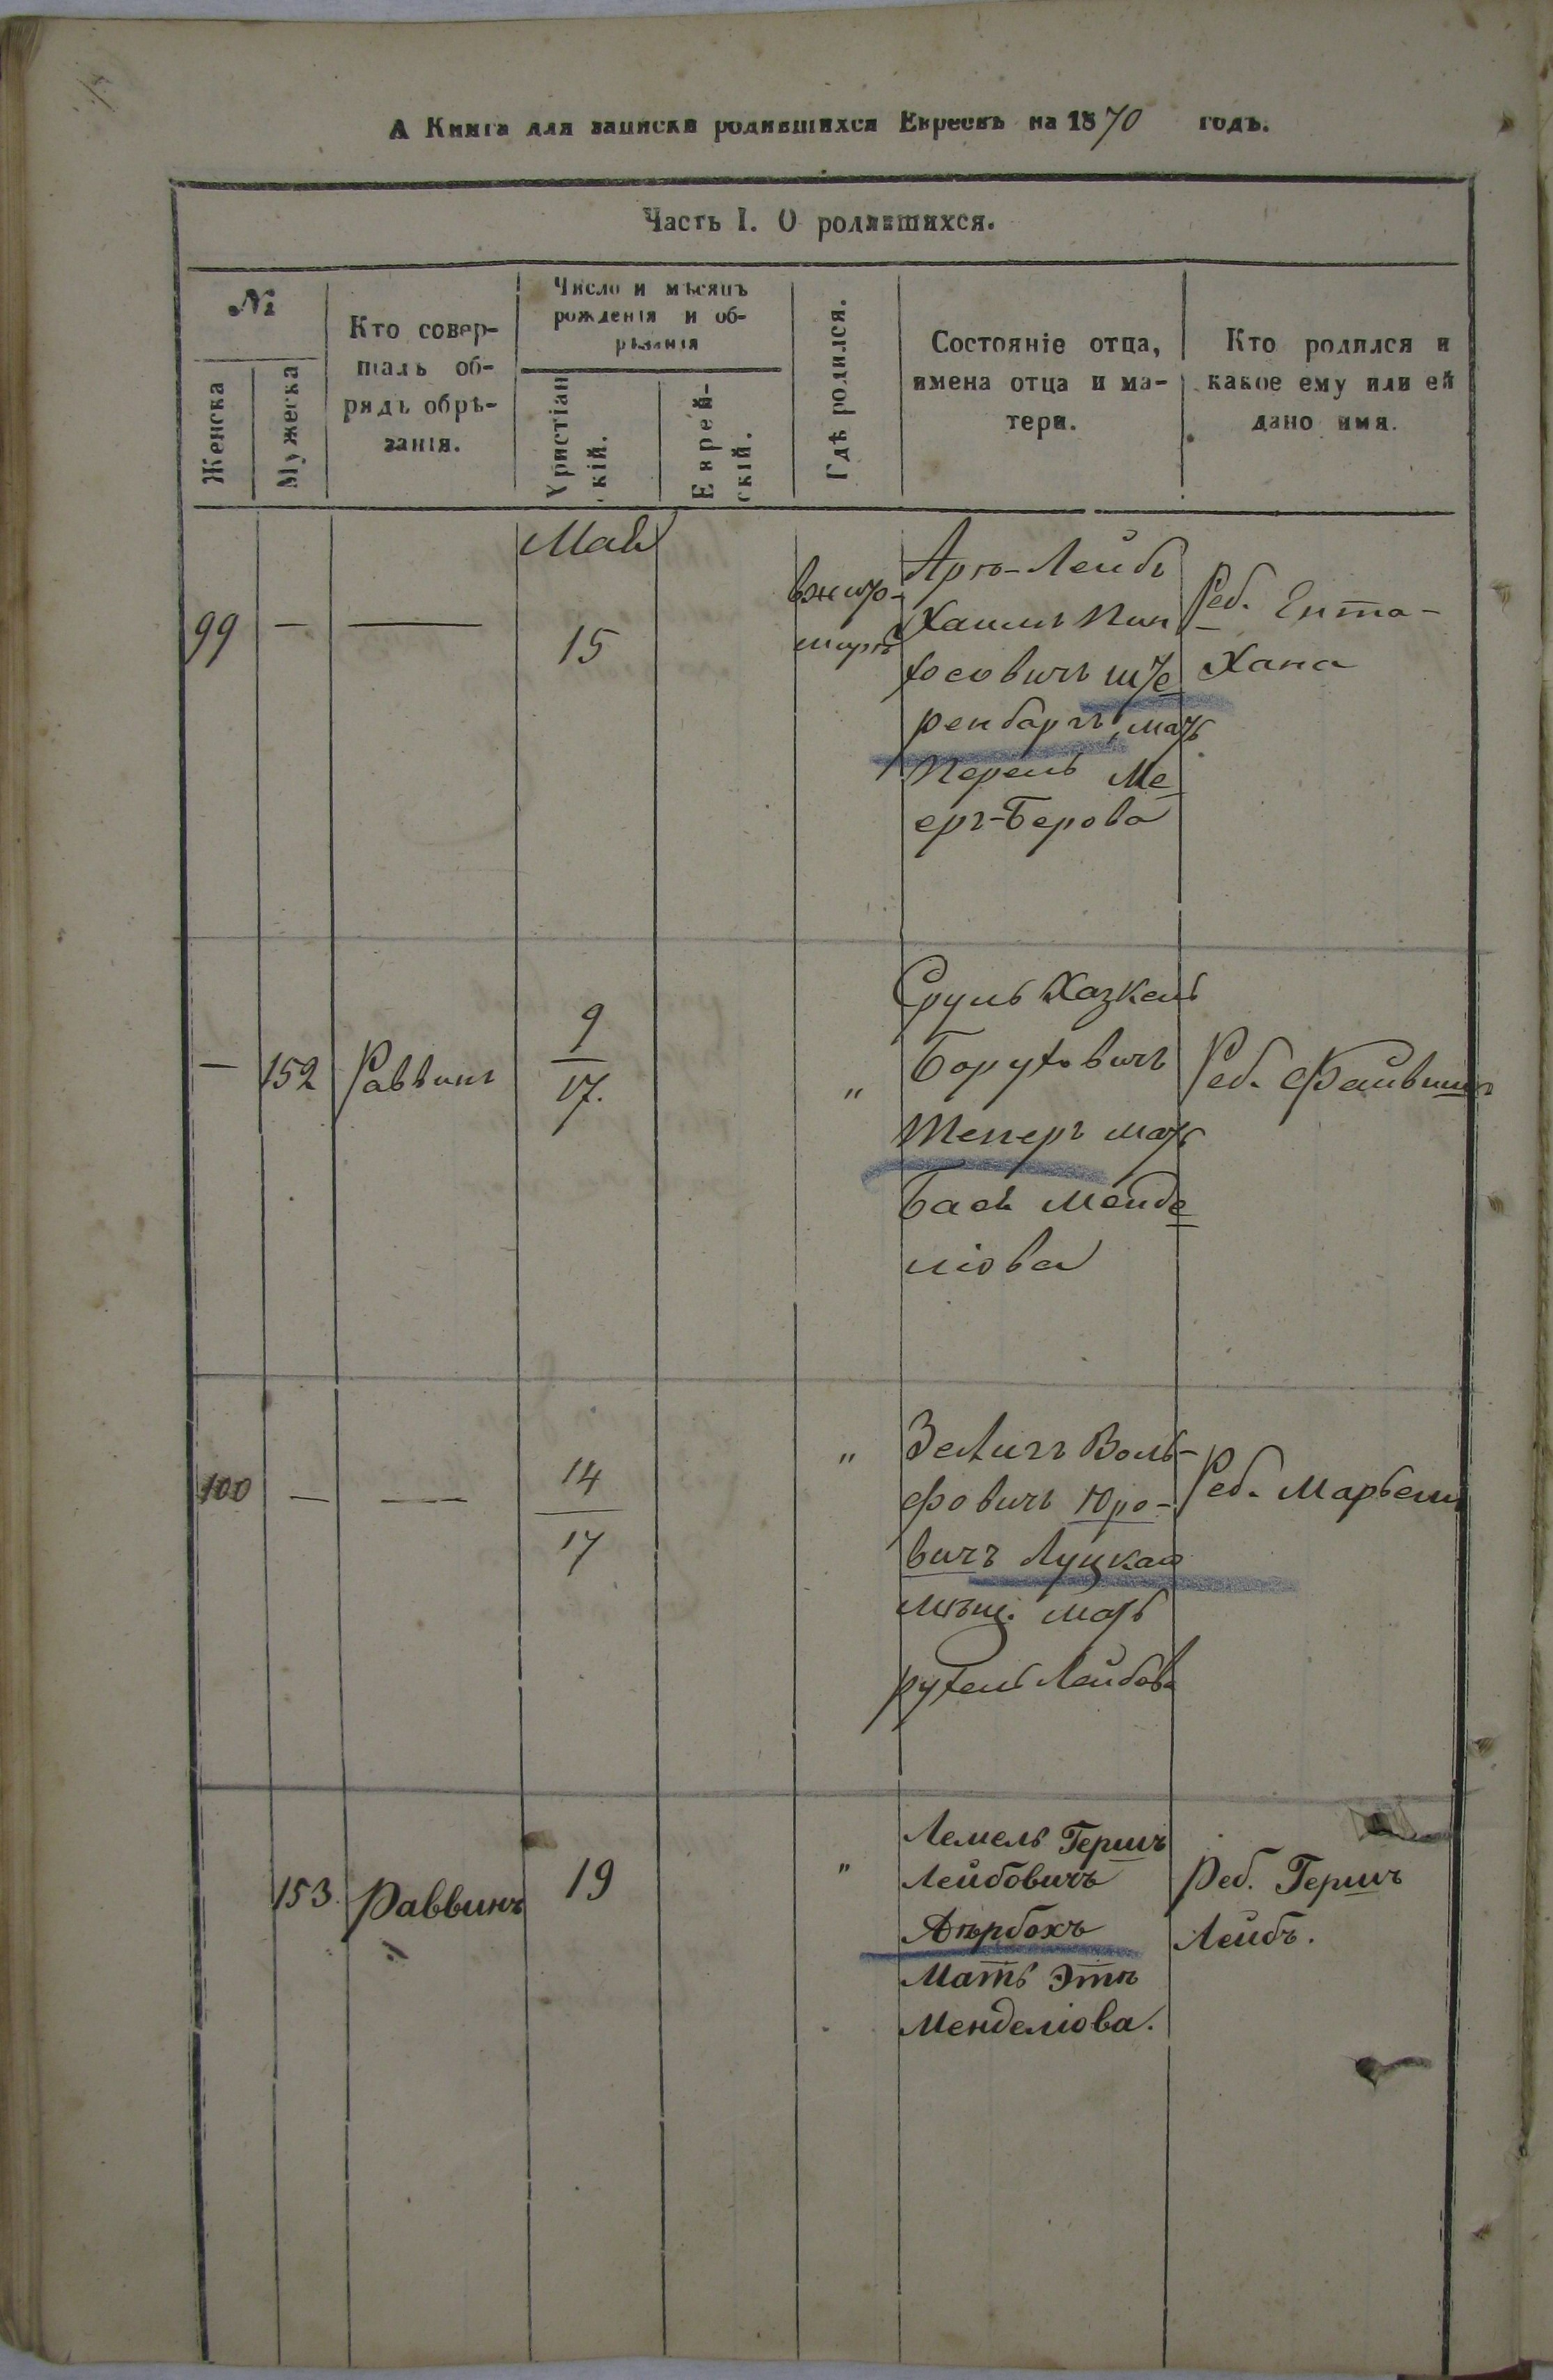 А Книга для записки родившихся Евреевъ на 1870 годъ.
Часть I. О родившихся.
№
Женска
Мужеска
Кто совер-
шалъ об-
рядъ обрѣ-
занія.
Число и мѣсяцъ
рожденія и об-
рѣзанія
Христіан
скій.
Еврей-
скій.
Гдѣ родился.
Состояніе отца,
имена отца и ма-
тери.
Кто родился и
какое ему или ей
дано имя.
Май
99
—
—
15
вжито-
мирѣ
Арю-Лейбъ
Хаимъ Пин
хосовичъ Ште
ренбаргъ, мать
Перель Ме
еръ-Берова
Реб. Ента-
Хана
—
152
Раввинъ
9
17.
"
Сруль Хазкель
Боруховичъ
Теперъ мать
Бася Менде
ліова
Реб. Файвишъ
100
—
—
14
17
"
Зеличъ Воль-
фовичъ Юро-
вичъ Луцкая
мѣщ. мать
рухель Лейбова
Реб. Марьемъ
153.
Раввинъ
19
"
Лемель Гершъ
Лейбовичъ
Ауербохъ
Мать Этя
Менделіова.
Реб. Гершъ
Лейбъ.